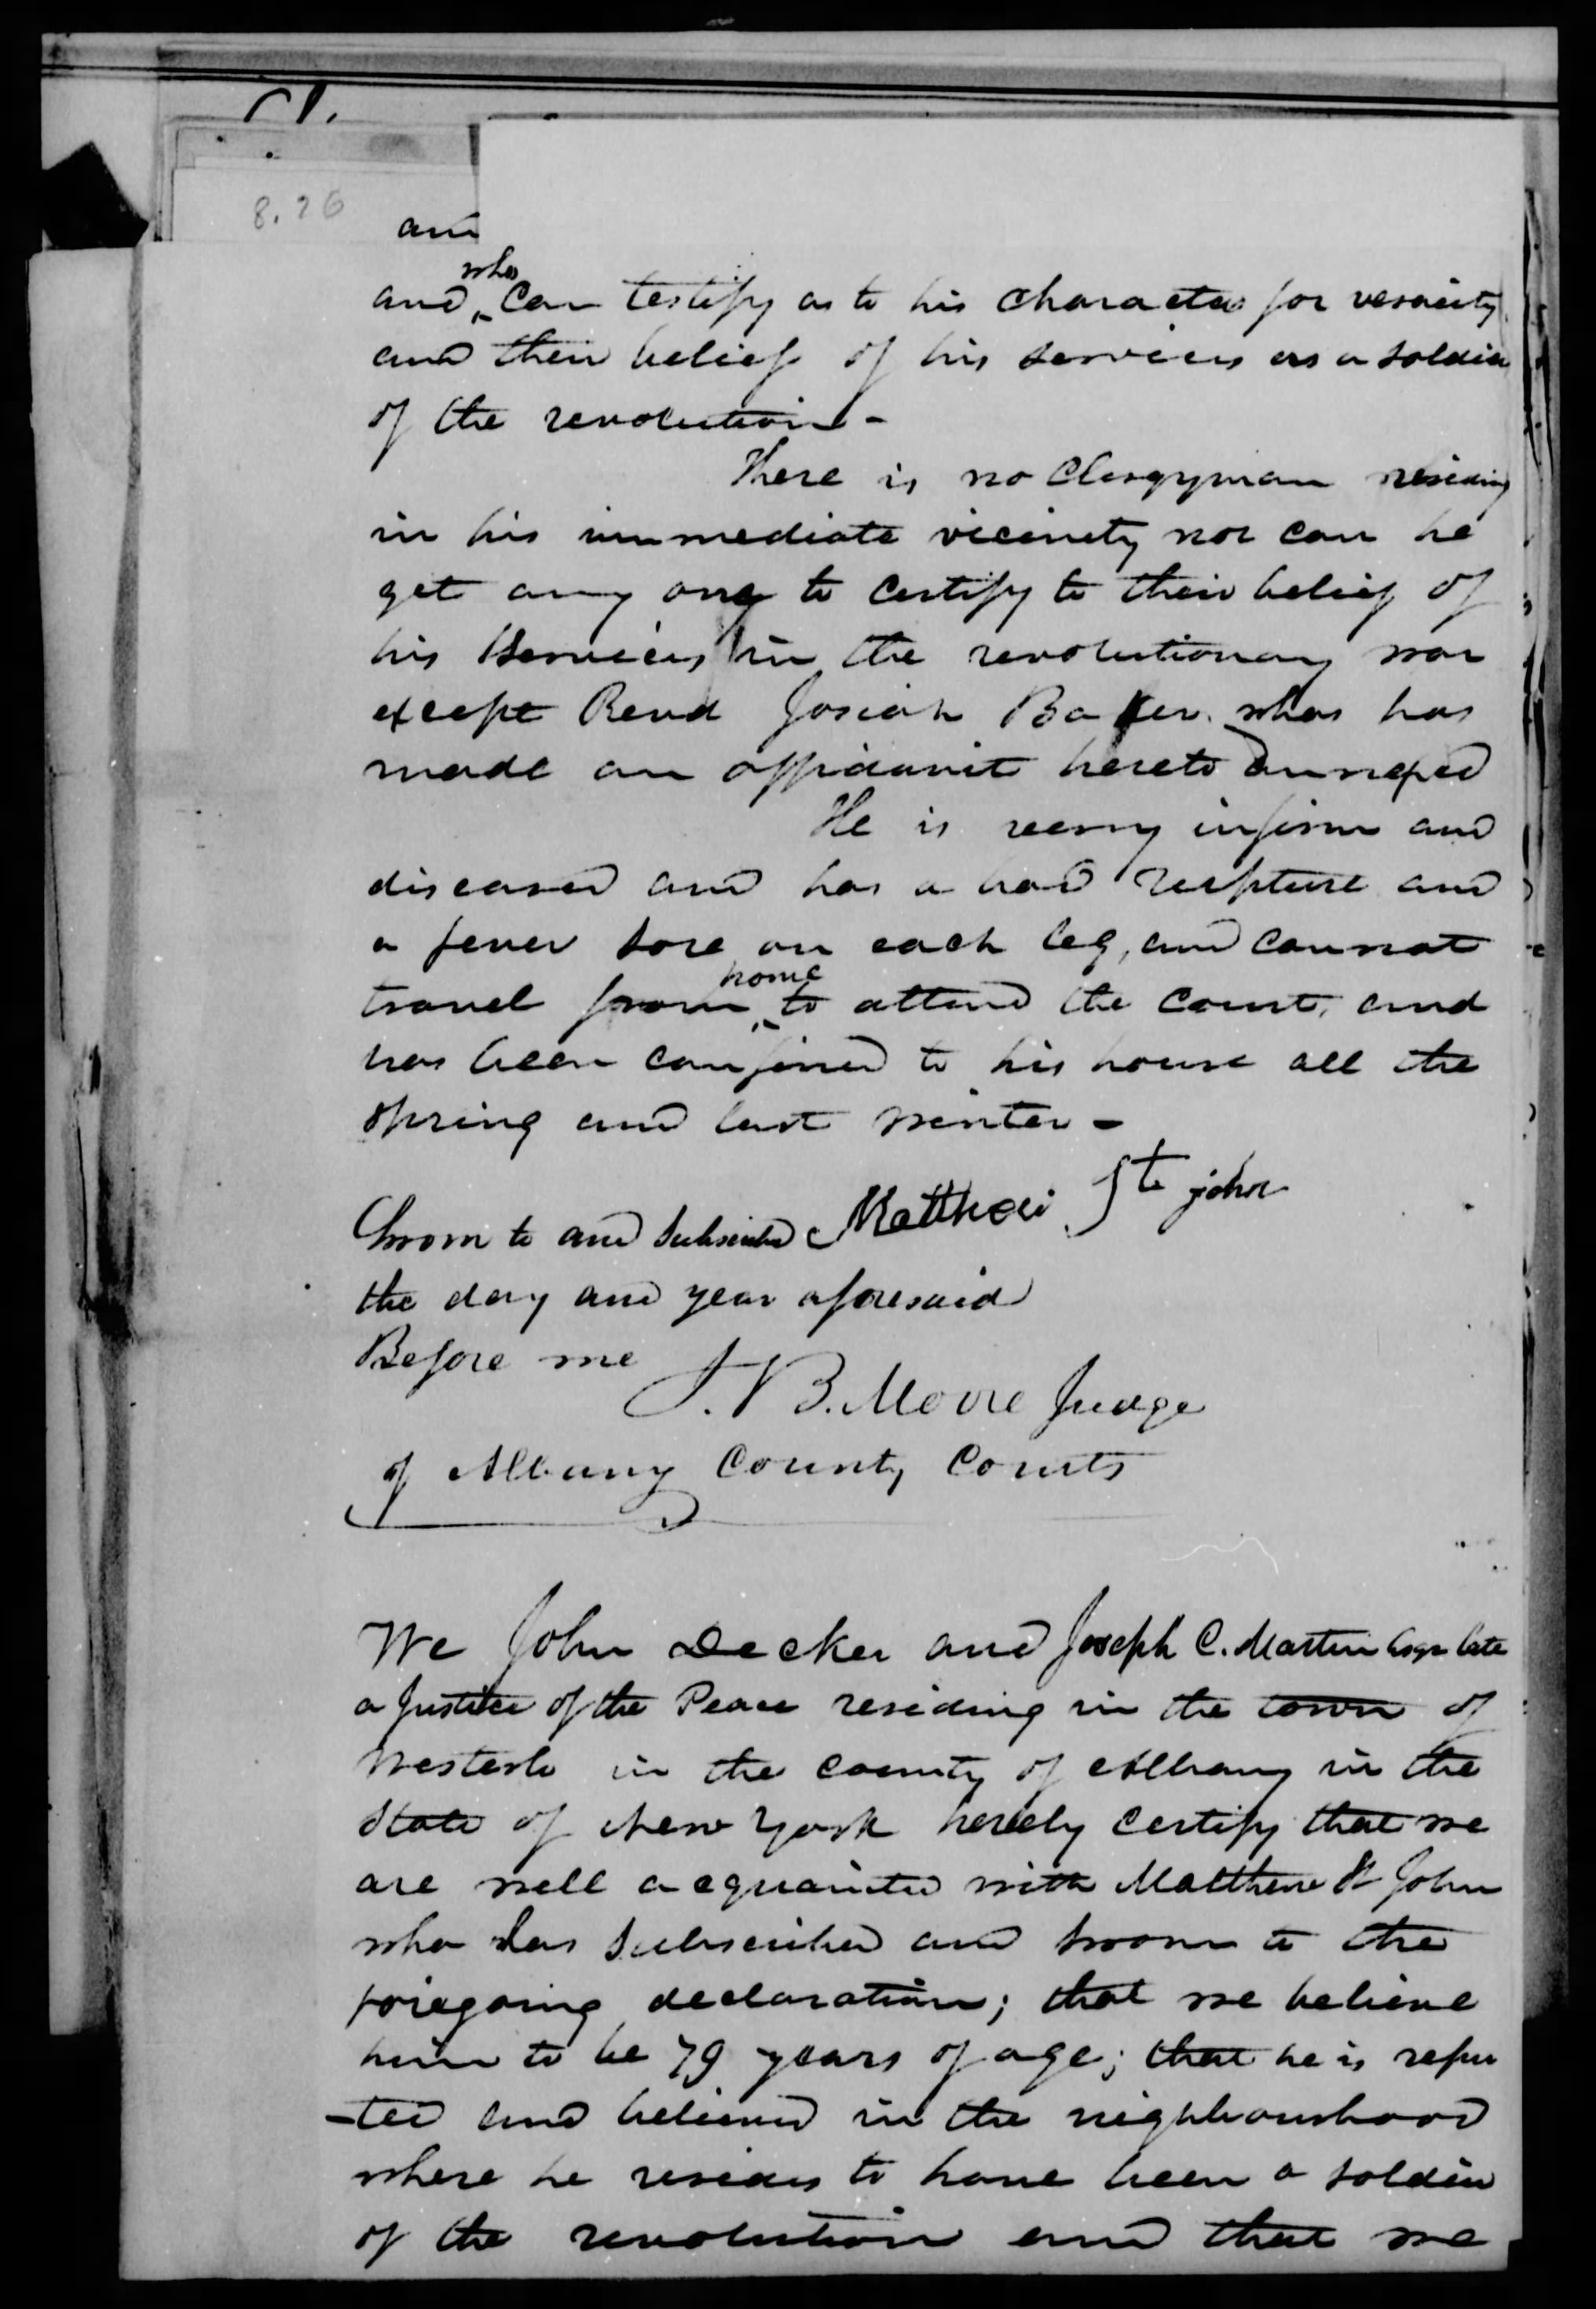 8.26
and
and who can testify as to his character for veracity
and their belief of his services as a soldier
of the revolution -
There is no Clergyman residing
in his immediate vicinity nor can he
get any one to certify to their belief of
his services in the revolutionary war
except Revd Josiah Baker who has
made an affidavit hereto annexed
He is very infirm and
diseased and has a bad rupture and
a fever sore on each leg, and cannot
travel from home to attend the court, and
has been confined to his house all the
spring and last winter -
Sworn to and subscribed Matthew St john
the day and year aforesaid
Before me
J. B. Moore Judge
of Albany County Courts
We John Decker and Joseph C. Martin Esqr late
a Justice of the Peace residing in the town of
Westerlo in the county of Albany in the
State of New York hereby certify that we
are well acquainted with Matthew St John
who has subscribed and sworn to the
foregoing declaration; that we believe
him to be 79 years of age; that he is repu
-ted and believed in the neighbourhood
where he resides to have been a soldier
of the revolution and that we